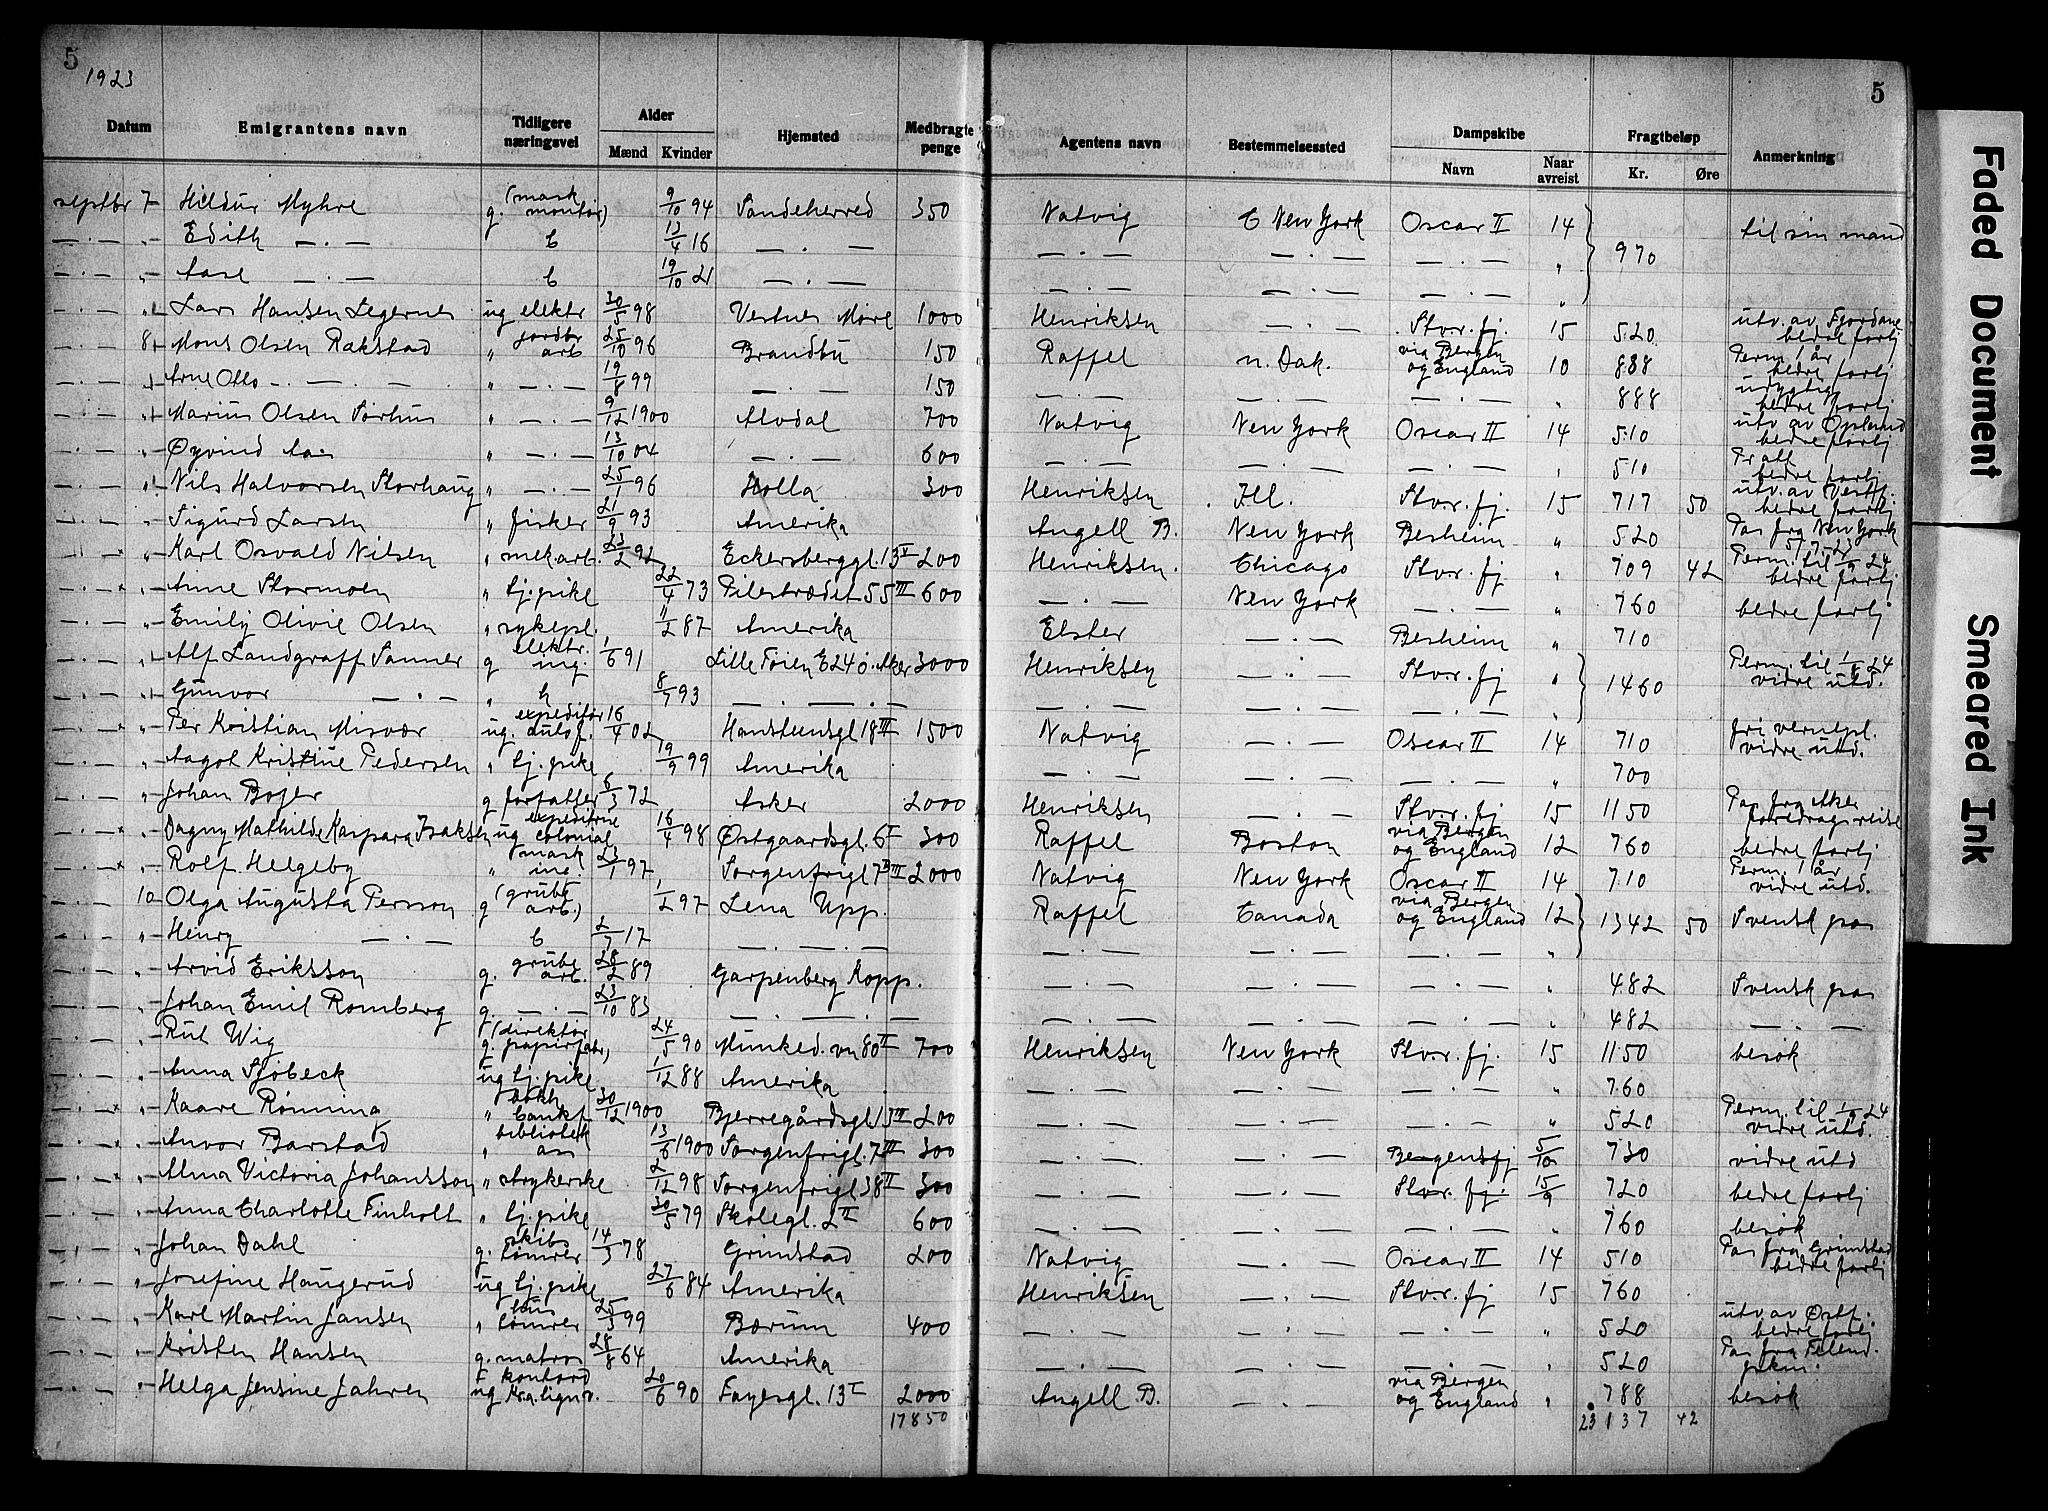 5
1923
5
Datum Emigrantens navn Tidligere næringsvei Alder Mænd Kvinder Hjemsted Medbragte penge Agentens navn Bestemmelsessted Dampskibe Navn Naar avreist Fragtbeløp Kr. Øre Anmerkning
septbr 7 Hildur Myhre g. (mask montør) 9/10 94 Sandeherred 350 Natvig New York Oscar II 14 970 til sin mand
— . — „ Edith — . — b 13/4 16 — . — — . — — . — — . — „
— . — „ Aase — . — b 19/10 21 — . — — . — — . — — . — „
— . — „ Lars Hansen Legernes ug elektr 30/5 98 Vestnes Møre 1000 Henriksen — . — Stv.r. fj. 15 520 utv. av Fjordane bedre forlj
— . — 8 Mons Olsen Rakstad „ jordbr arb 25/10 96 Brandbu 150 Raffel n. Dak. via Bergen og England 10 888 Perm. 1 år bedre forlj
— . — „ Arne Otto — . — „ — . — 19/8 99 — . — 150 — . — — . — — . — „ 888 udygtig bedre forlj
— . — „ Marius Olsen Sørhus „ — . — 9/12 1900 Alvdal 700 Natvig New York Oscar II 14 510 utv av Opland bedre forlj
— . — „ Øyvind Aas „ — . — 13/10 04 — . — 600 — . — — . — — . — „ 510 bedre forlj
— . — „ Nils Halvorsen Storhaug „ — . — 25/1 96 Holla 300 Henriksen Ill. Stv.r. fj. 15 717 50 utv. av Vestf. bedre forlj
— . — „ Sigurd Larsen „ fisker 21/9 93 Amerika Angell B. New York Besheim „ 520 Pas fra New York 5/7-23
— . — „ Karl Osvald Nilsen „ mek arb. 23/2 92 Eckersberggt. 13 V 200 Henriksen. Chicago Stv.r. fj „ 709 42 Perm. til 1/9 24 bedre forlj
— . — „ Anne Stormoen „ tj. pike 22/4 73 Pilestrædet 55 III 600 — . — New York — . — „ 760 bedre forlj
— . — „ Emily Olivie Olsen „ sykepl. 11/2 87 Amerika Elster — . — Besheim „ 710
— . — „ Alf Landgraff Sanner g elektr. ing. 1/6 91 Lille Tøien E24 ø. Aker 3000 Henriksen — . — Stv.r. fj „ 1460 Perm. til 1/8 24 vidre utd.
— . — „ Gunvor — . — „ h 8/7 93 — . — — . — — . — — . — „
— . — „ Per Kristian Misvær ug. expeditør 16/4 02 Hansteensgt 18 III 1500 Natvig — . — Oscar II 14 710 fri vernepl. vidre utd.
— . — „ Aagot Kristine Pedersen „ tj. pike 19/9 99 Amerika — . — — . — — . — „ 700
— . — „ Johan Bojer g forfatter 6/3 72 Asker 2000 Henriksen — . — Stv.r. fj 15 1150 Pas fra Aker foredragsreise
— . — „ Dagny Mathilde Kaspara Isaksen ug expeditrise colonial 16/4 98 Østgaardsgt. 6 I 300 Raffel Boston via Bergen og England 12 760 bedre forlj
— . — „ Rolf Helgeby „ mask ing. 23/1 97 Sorgenfrigt 7 III 2000 Natvig New York Oscar II 14 710 Perm. 1 år vidre utd.
— . — 10 Olga Augusta Persson g (grube arb) 1/2 97 Lena Upp. Raffel Canada via Bergen og England 12 1342 50 Svensk pas
— . — „ Henry — . — b 2/7 17 — . — — . — — . — — . — „
— . — „ Arvid Eriksson g. grube arb. 28/2 89 Garpenberg Kopp. — . — — . — — . — „ 482 Svensk pas
— . — „ Johan Emil Romberg g. — . — 23/10 83 — . — — . — — . — — . — „ 482 — . —
— . — „ Rut Wig g. (direktør papirfabr.) 24/5 90 Munked. vn 80 II 700 Henriksen New York Stv.r. fj. 15 1150 besøk
— . — „ Anna Sjöbeck ug tj. pike 1/12 88 Amerika — . — — . — — . — „ 760
— . — „ Kaare Rønning „ bokh bankf 30/12 1900 Bjerregårdsgt 13 III 200 — . — — . — — . — „ 520 Perm. til 1/9 24 vidre utd.
— . — „ Anvor Barstad „ bibliotek ass 13/6 1900 Sorgenfrigt. 7 III 300 — . — — . — Bergensfj 5/10 730 vidre utd
— . — „ Alma Victoria Johansson „ strykerske 2/12 98 Sorgenfrigt 38 II 300 — . — — . — Stv.r. fj. 15/9 720 bedre forlj
— . — „ Anna Charlotte Finholt „ tj. pike 30/5 79 Skolegt. 2 II 600 — . — — . — — . — „ 760 besøk
— . — „ Johan Dahl g. skibs tømrer 14/3 78 Grimstad 200 Natvig — . — Oscar II 14 510 Pas fra Grimstad bedre forlj
— . — „ Josefine Haugerud ug tj. pike 27/6 84 Amerika Henriksen — . — Stv.r. fj 15 760
— . — „ Karl Martin Jansen „ hus tømrer 25/3 99 Bærum 400 — . — — . — — . — „ 520 utv. av Østf. bedre forlj
— . — „ Kristen Hansen g. matros 28/8 64 Amerika — . — — . — — . — „ 520 Pas fra
— . — „ Helga Jensine Jahren ug F kontord Kra. lign.v. 20/6 90 Fayesgt. 13 I 2000 Angell B. — . — via Bergen og England „ 788 besøk
17850 23137 42
Faded Document
Smeared Ink